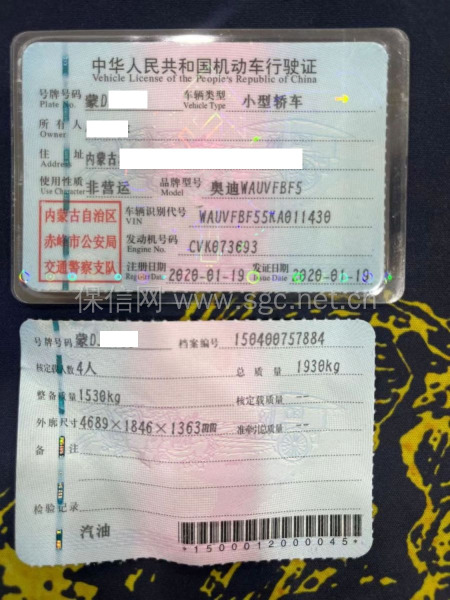 中华人民共和国机动车行驶证
Vehicle License of the People's Republic of China
号牌号码 蒙D 车辆类型 小型轿车
Plate No. Vehicle Type
所有人
Owner
住址 内蒙古
Address
使用性质 非营运 品牌型号 奥迪WAUVFBF5
Use Character Model
内蒙古自治区
赤峰市公安局
交通警察支队
车辆识别代号 WAUVFBF55KA011430
VIN
发动机号码 CVK073693
Engine No.
注册日期 2020-01-19 发证日期 2020-01-19
Register Date Issue Date
保信网 www.sgc.net.cn
号牌号码 蒙D 档案编号 150400757884
核定载人数 4人 总质量 1930kg
整备质量 1530kg 核定载质量 --
外廓尺寸 4689×1846×1363mm 准牵引总质量 --
备注
检验记录
汽油
*1500012000045*